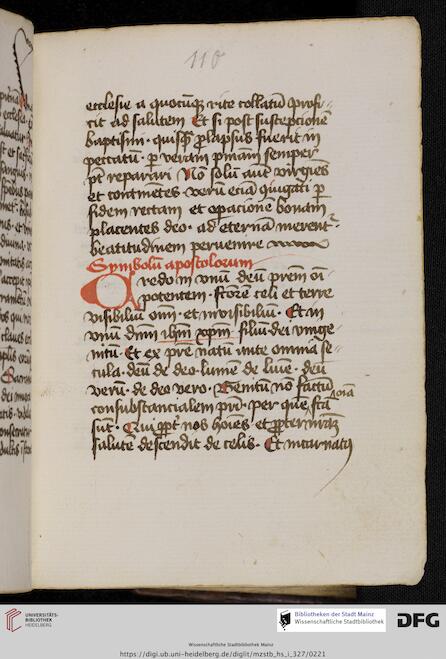 110
ecclesie a quocūqꝫ rite collatū profi-
cit ad salutem Et si post susceptionē
baptismi · quisqꝫ prolapsus fuerit in
peccatū · per verā pniam semper
pt reparari Nō solū aut virgīes
et continētes · verū eciā ꝯiugati per
fidem rectam et operacionē bonam
placentes deo · ad eternā merent
beatitudinem peruenire
Symbolū apostolorum
Credo in vnū deū prēm oī-
potentem · fctorē celi et terre
visibiliū omī · et inuisibiliū · Et in
vnū dnm ihm xpm · filiū dei vnige-
nitū · Et ex prē natū ante omnia se-
cula · deū de deo · lumē de lumē · deū
verū · de deo vero · Genitū nō factū
consubstancialem pri · per quē oīa fcā
sūt · Qui ꝓpt nos hoīes · et ꝓpter nrām
salutē descendit de celis · Et incarnatꝯ
UNIVERSITÄTS-
BIBLIOTHEK
HEIDELBERG
Bibliotheken der Stadt Mainz
Wissenschaftliche Stadtbibliothek
DFG
Wissenschaftliche Stadtbibliothek Mainz
https://digi.ub.uni-heidelberg.de/diglit/mzstb_hs_i_327/0221